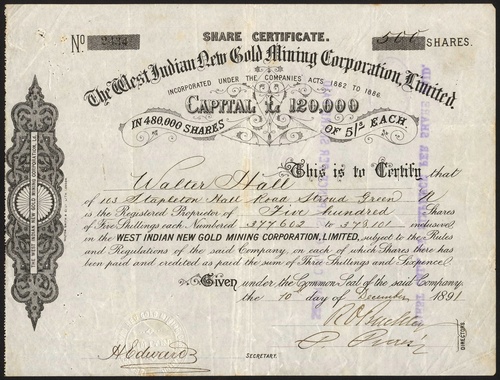 SHARE CERTIFICATE.
No 2434 500 SHARES.
The West Indian New Gold Mining Corporation, Limited.
INCORPORATED UNDER THE COMPANIES ACTS 1862 TO 1886
CAPITAL £ 120,000
IN 480,000 SHARES OF 5/s EACH.
This is to Certify that
Walter Hall
of 103 Stapleton Hall Road Stroud Green N
is the Registered Proprietor of Five hundred Shares
of Five Shillings each, Numbered 377602 to 378101 inclusive,
in the WEST INDIAN NEW GOLD MINING CORPORATION, LIMITED, subject to the Rules
and Regulations of the said Company, on each of which Shares there has
been paid and credited as paid the sum of Three Shillings and Sixpence
Given under the Common Seal of the said Company,
the 10 day of December 1891
DIRECTORS
SECRETARY.
PER SHARE PAID.
WEST INDIAN NEW GOLD MINING CORPORATION, Ld.